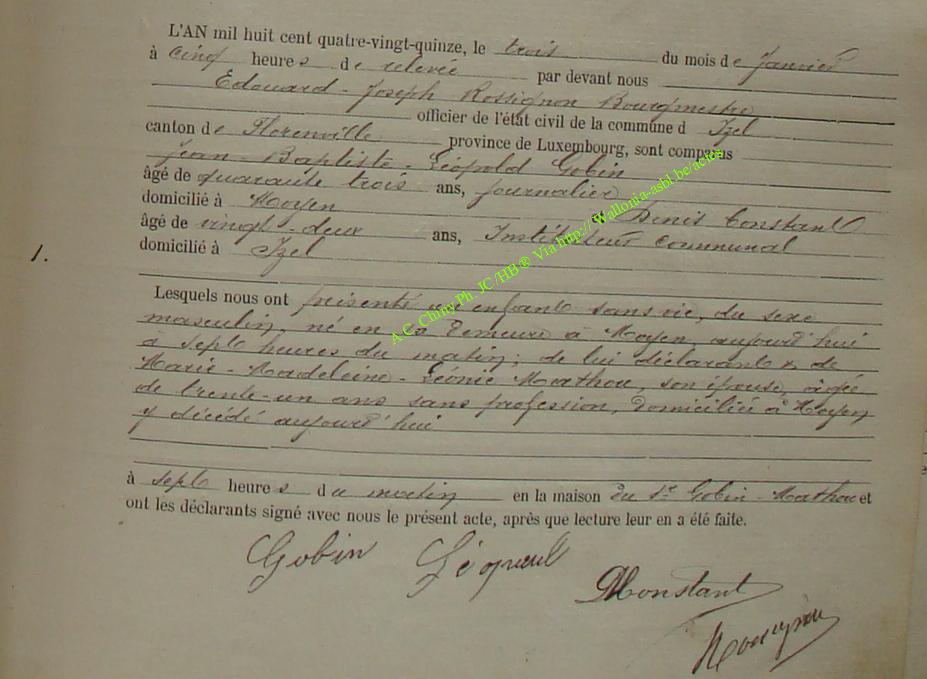 L'AN mil huit cent quatre-vingt-quinze, le trois du mois de Janvier
à cinq heures de relevée par devant nous
Edouard - Joseph Rossignon Bourgmestre
officier de l'état civil de la commune d Izel
canton de Florenville province de Luxembourg, sont comparus
Jean - Baptiste - Léopold Gobin
âgé de quarante trois ans, journalier
domicilié à Moyen & Denis Constant
âgé de vingt-deux ans, Instituteur communal
domicilié à Izel
1.
Lesquels nous ont présenté un enfant sans vie, du sexe
masculin, né en sa demeure à Moyen, aujourd'hui
à sept heures du matin; de lui déclarant & de
Marie - Madeleine - Léonie Mathou, son épouse, âgée
de trente-un ans sans profession, domiciliée à Moyen
y décédé aujourd'hui
à sept heures du matin en la maison du Sr Gobin - Mathou et
ont les déclarants signé avec nous le présent acte, après que lecture leur en a été faite.
Gobin Léopold
DConstant
Rossignon
A.C. Chiny Ph. JC/HB ® Via http://Wallonia-asbl.be/actes